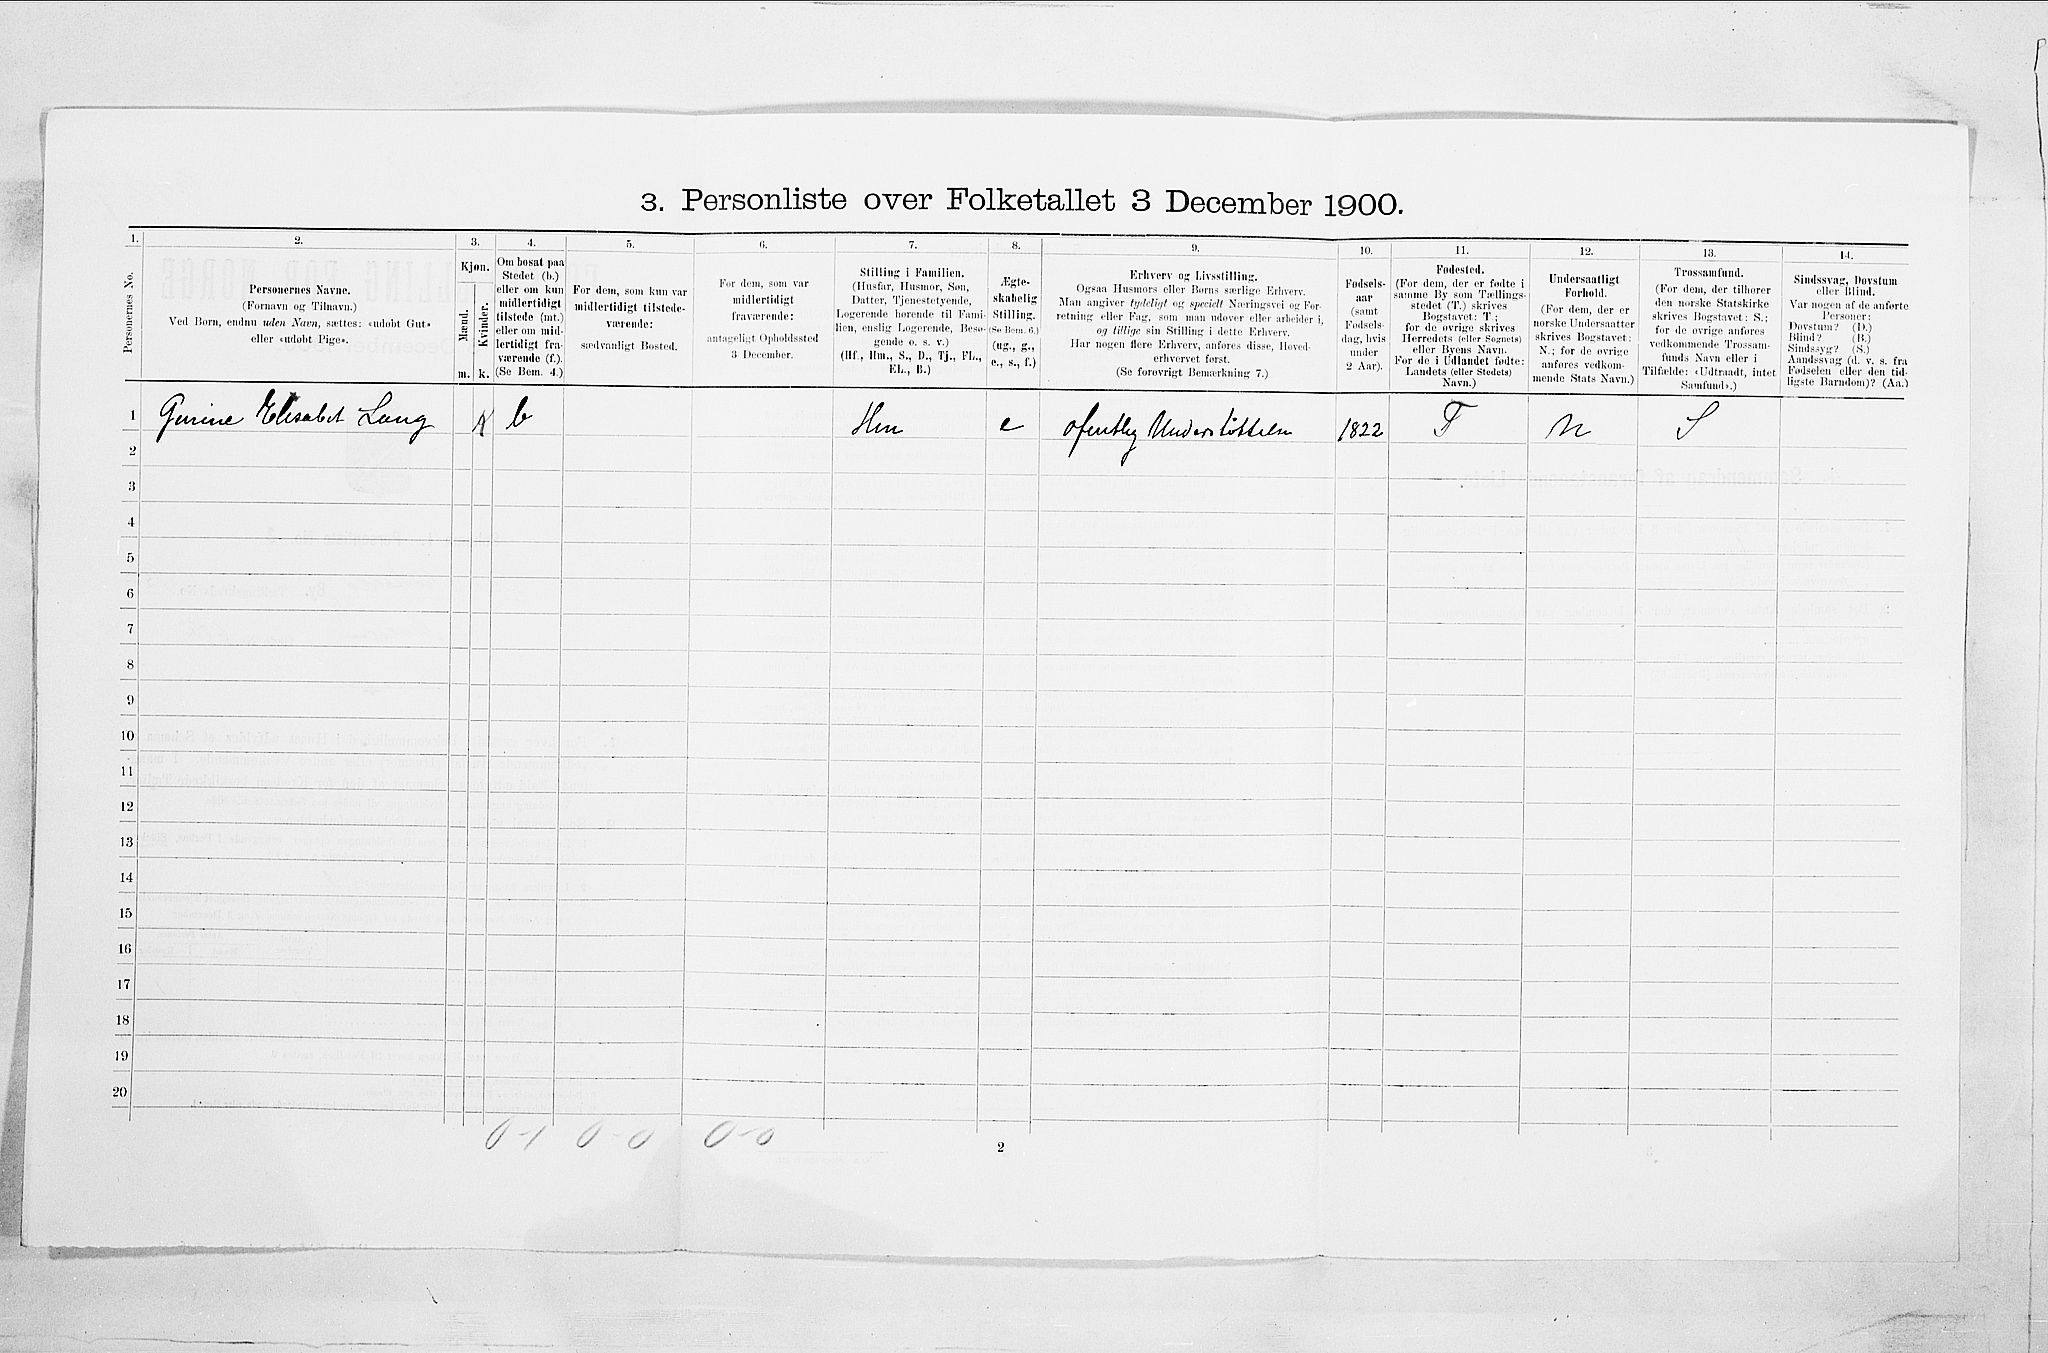 3. Personliste over Folketallet 3 December 1900.
1. 2. 3. 4. 5. 6. 7. 8. 9. 10. 11. 12. 13. 14.
Personernes No.
Personernes Navne.
(Fornavn og Tilnavn.)
Ved Børn, endnu uden Navn, sættes: «udøbt Gut»
eller «udøbt Pige».
Kjøn.
Mænd.
Kvinder.
m. k.
Om bosat paa
Stedet (b.)
eller om kun
midlertidigt
tilstede (mt.)
eller om mid-
lertidigt fra-
værende (f.).
(Se Bem. 4.)
For dem, som kun var
midlertidigt tilstede-
værende:
sædvanligt Bosted.
For dem, som var
midlertidigt
fraværende:
antageligt Opholdssted
3 December.
Stilling i Familien.
(Husfar, Husmor, Søn,
Datter, Tjenestetyende,
Logerende hørende til Fami-
lien, enslig Logerende, Besø-
gende o. s. v.)
(Hf., Hm., S., D., Tj., FL.,
EL., B.)
Ægte-
skabelig
Stilling.
(Se Bem. 6.)
(ug., g.,
e., s., f.)
Erhverv og Livsstilling.
Ogsaa Husmors eller Børns særlige Erhverv.
Man angiver tydeligt og specielt Næringsvei og For-
retning eller Fag, som man udøver eller arbeider i,
og tillige sin Stilling i dette Erhverv.
Har nogen flere Erhverv, anføres disse, Hoved-
erhvervet først.
(Se forøvrigt Bemærkning 7.)
Fødsels-
aar
(samt
Fødsels-
dag, hvis
under
2 Aar).
Fødested.
(For dem, der er fødte i
samme By som Tællings-
stedet (T.) skrives
Bogstavet: T;
for de øvrige skrives
Herredets (eller Sognets)
eller Byens Navn.
For de i Udlandet fødte:
Landets (eller Stedets)
Navn.)
Undersaatligt
Forhold.
(For dem, der er
norske Undersaatter
skrives Bogstavet:
N.; for de øvrige
anføres vedkom-
mende Stats Navn.)
Trossamfund.
(For dem, der tilhører
den norske Statskirke
skrives Bogstavet: S.;
for de øvrige anføres
vedkommende Trossam-
funds Navn eller i
Tilfælde: «Udtraadt, intet
Samfund».)
Sindssvag, Døvstum
eller Blind.
Var nogen af de anførte
Personer:
Døvstum? (D.)
Blind? (B.)
Sindssyg? (S.)
Aandssvag (d. v. s. fra
Fødselen eller den tid-
ligste Barndom)? (Aa.)
1 Gurine Elisabet Lang K b Hm e ofentlig Understøttelse 1822 T N S
2
3
4
5
6
7
8
9
10
11
12
13
14
15
16
17
18
19
20
0-1 0-0 0-0
2